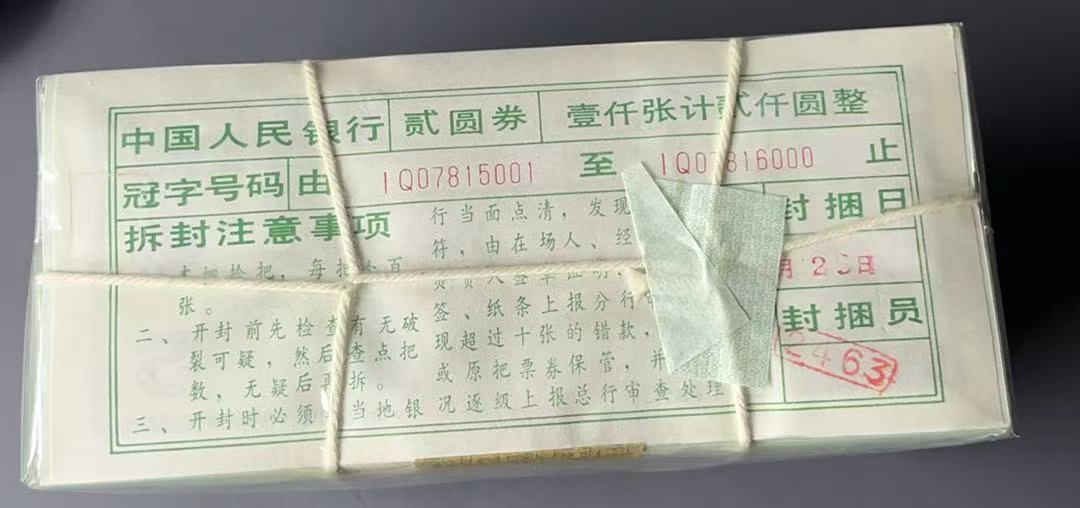 中国人民银行 贰圆券 壹仟张计贰仟圆整
冠字号码 由 IQ07815001 至 IQ07816000 止
拆封注意事项
张。
二、开封前先检查有无破
裂可疑,然后查点把
数,无疑后再拆。
三、开封时必须 当地银
行当面点清,发现
符,由在场人、经
签、纸条上报分行
现超过十张的错款,
或原把票券保管,并
况逐级上报总行审查处理
封捆日
月 日
封捆员
63